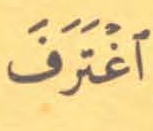 ٱغْتَرَفَ